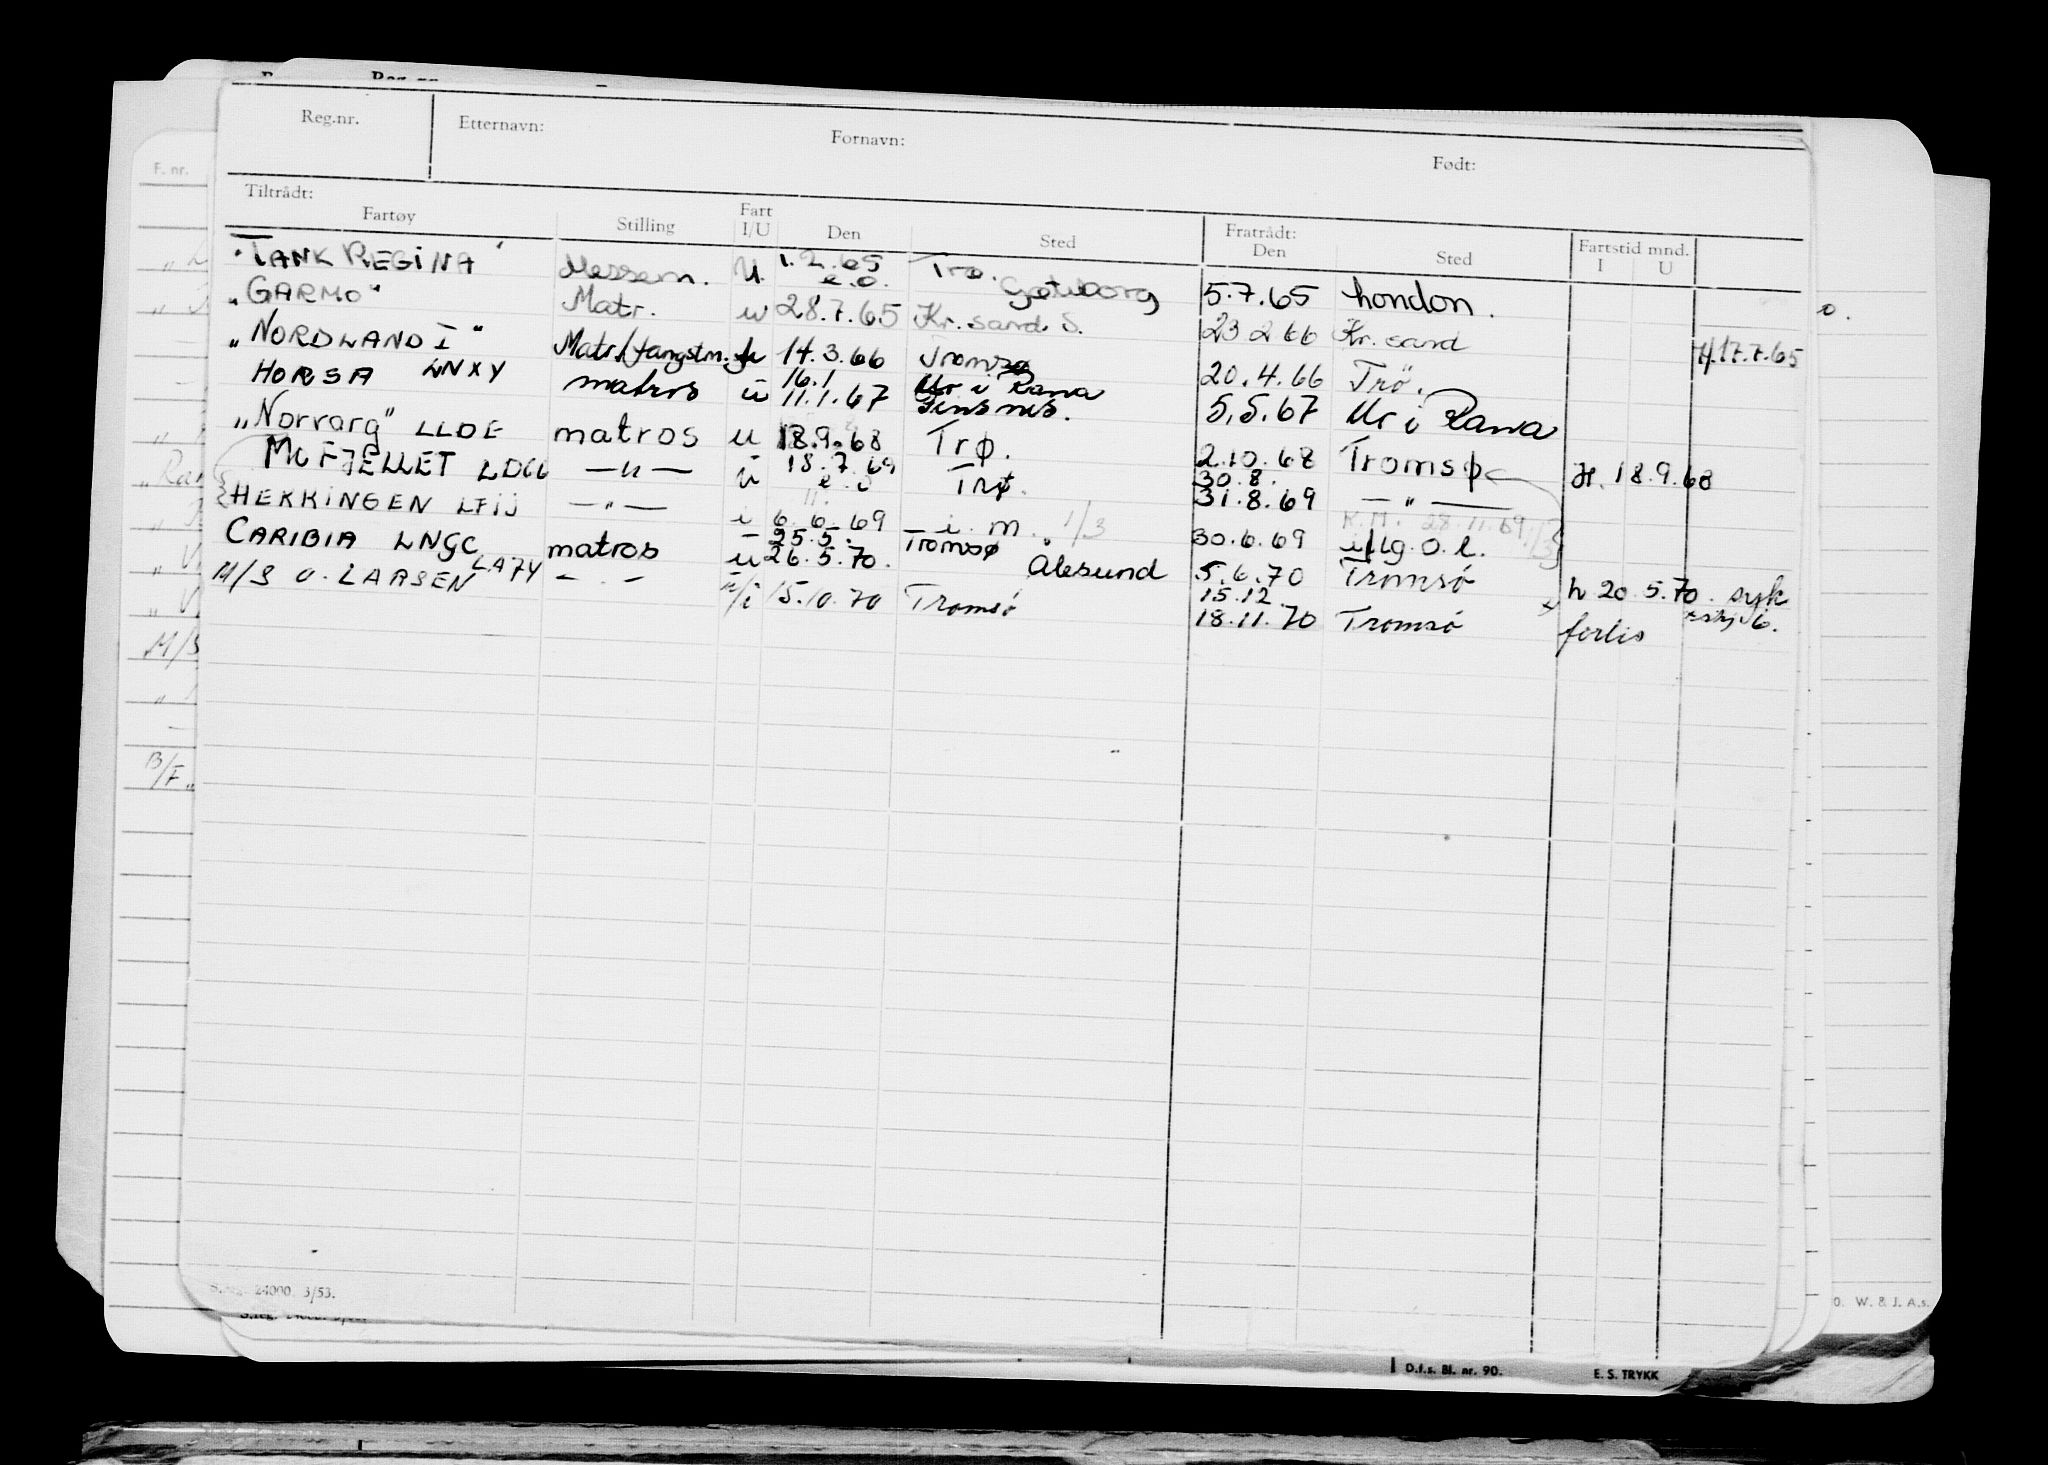 Reg.nr. Etternavn: Fornavn: Født:
Tiltrådt: Fratrådt: Fartstid mnd.
Fartøy Stilling Fart I/U Den Sted Den Sted I U
"TANK REGINA" Messem. U. 1.2.65 e.o. Trø. Gøteborg 5.7.65 London.
"GARMO" Matr. u 28.7.65 Kr.sand S. 23 2 66 Kr.sand H 17.7.65
"NORDLAND I" Matr./fangstm. u 14.3.66 Tromsø 20.4.66 Trö.
HORSA LNXY matros u 16.1 11.1.67 Mo i Rana Finsnes. 5.5.67 Mo i Rana
"Norvarg" LLOE matros u 18.9.68 Trø. 2.10.68 Tromsø H. 18.9.68
MOFJELLET LDCU —"— u 18.7.69 e.o Trø. 30.8. 31.8.69 —"—
HEKKINGEN LFIJ —"— i 6.6.69 i.m. 1/3 30.6.69 iflg. o.l. K.M. 28.11.69 1/3
CARIBIA LNGC matros u 25.5. 26.5.70. Tromsø Ålesund 5.6.70 Tromsø h 20.5.70. syk
M/S O. LARSEN LA7Y — . — u/i 15.10.70 Tromsö 15.12 18.11.70 Tromsö forlis
F. nr.
M/S
B/F
S.reg. 24000. 3/53.
D.f.s. Bl. nr. 90. E. S. TRYKK
W. & J. A.s.